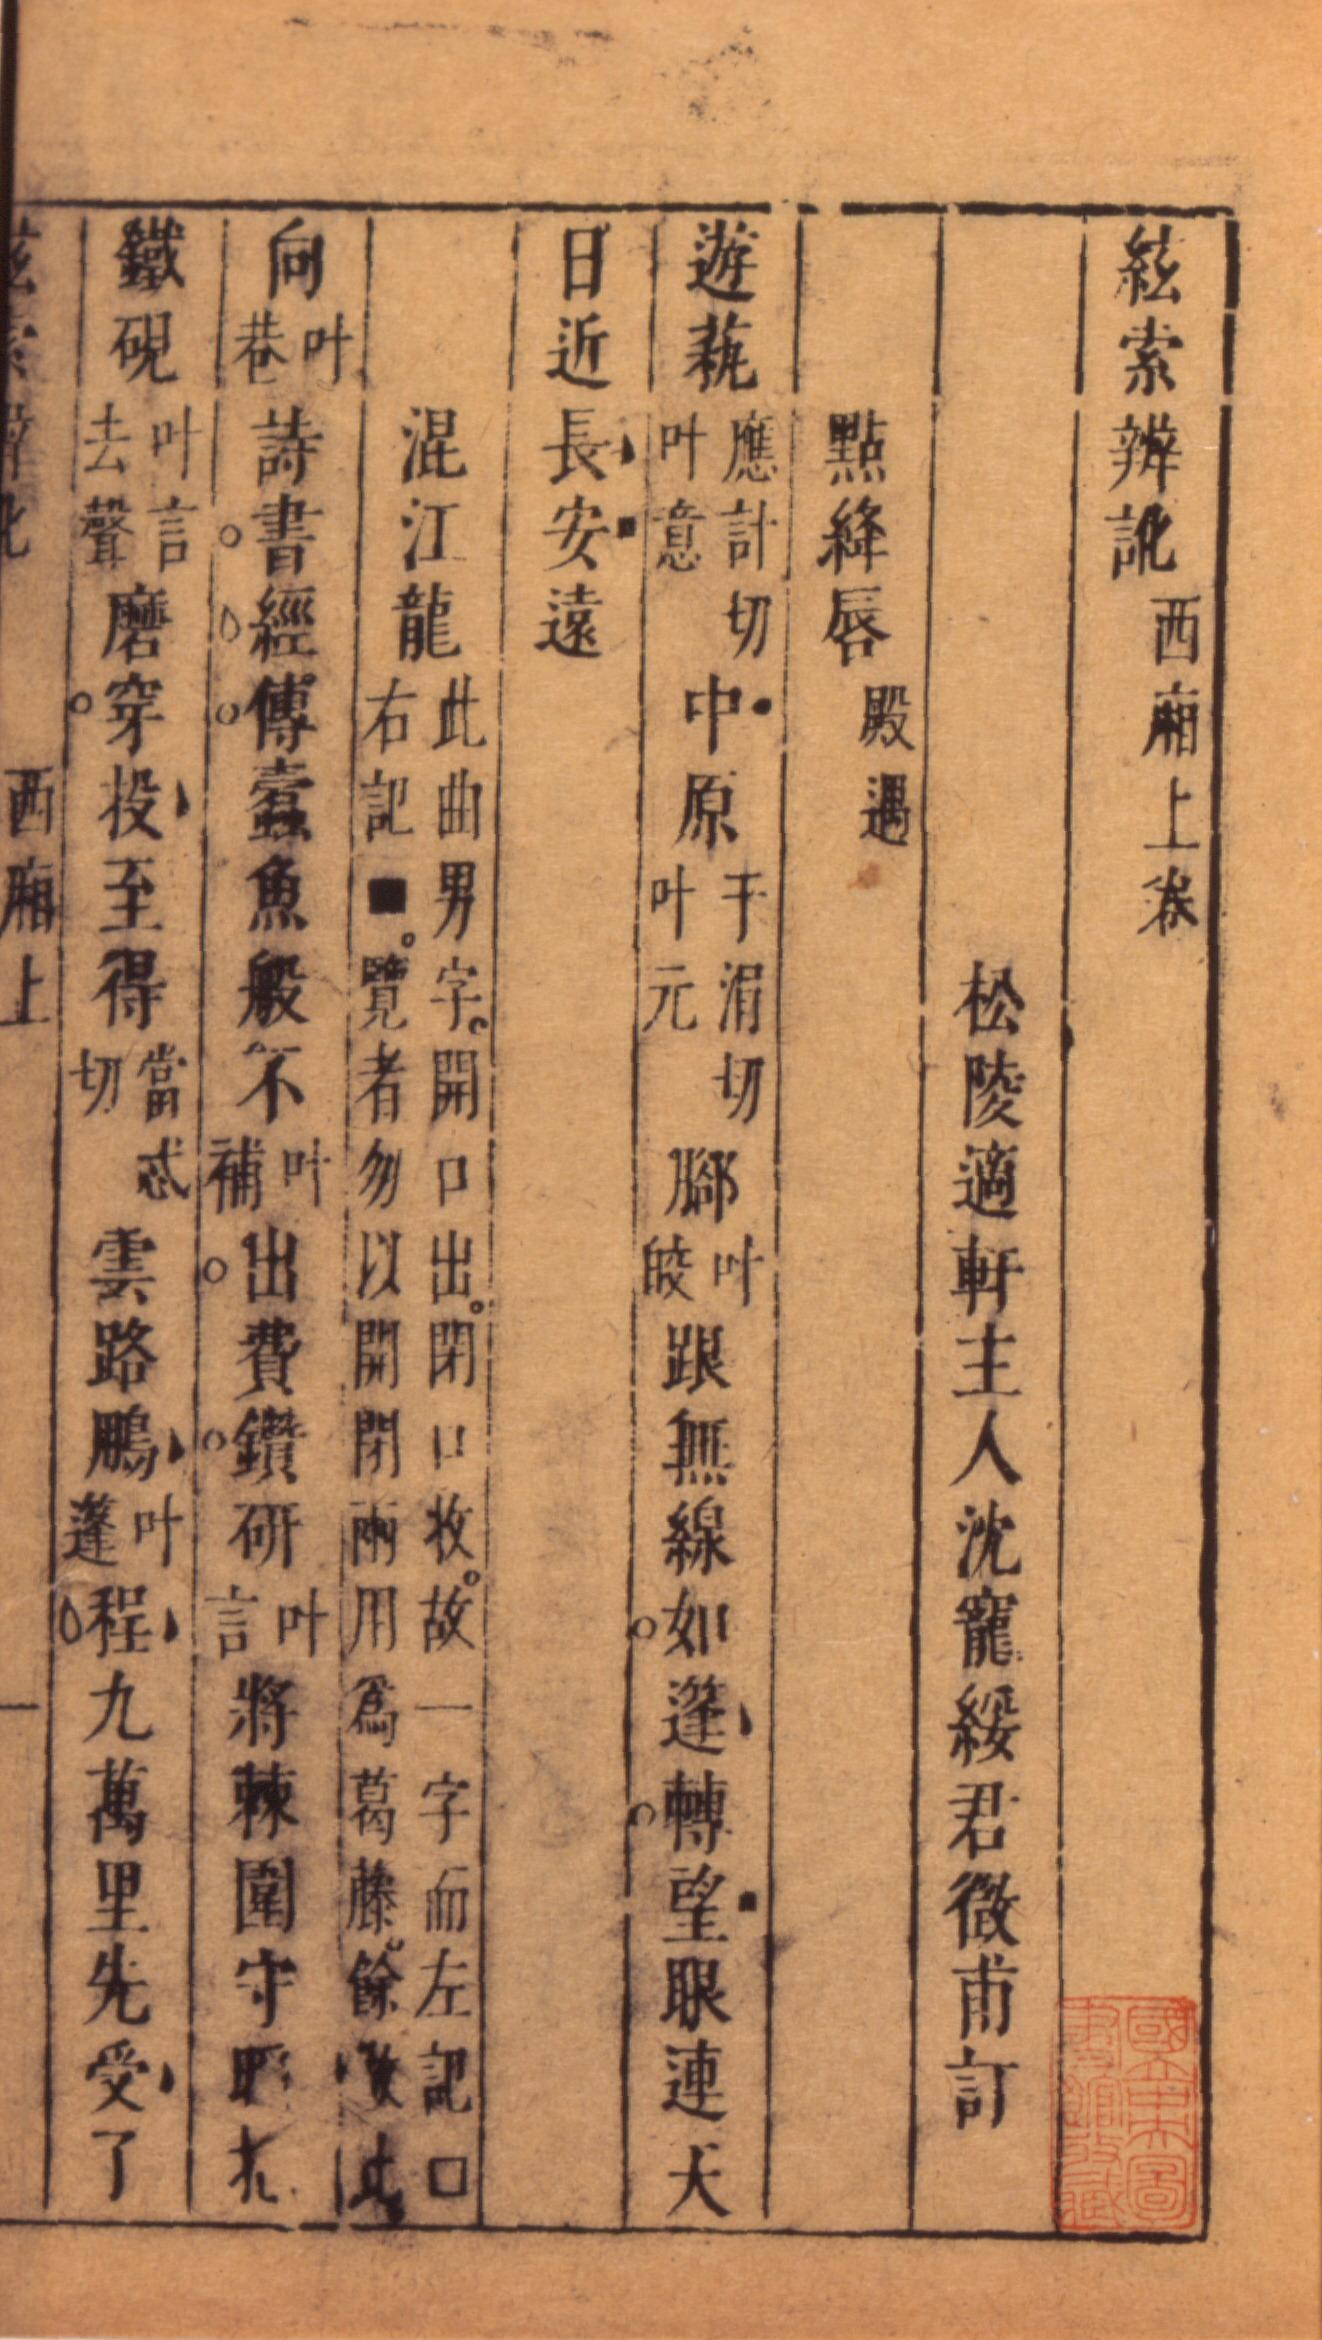 絃索辨訛西廂上卷
松陵適軒主人沈寵綏君徵甫訂
點絳唇殿遇
遊藝應計切叶意中原于涓切叶元腳叶皎跟無線如蓬轉望眼連天
日近長安遠
混江龍此曲男字開口出閉口收故一字而左記口右記■覽者勿以開閉兩用爲葛藤餘倣此
向叶巷詩書經傳蠹魚般不叶補出費鑽研叶言將棘圍守
鐵硯叶言去聲磨穿投至得當忒切雲路鵬叶蓬程九萬里先受了
西廂上 一
國立中央圖書館收藏